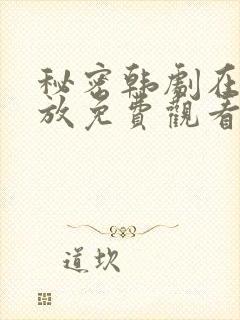 秘密韩劇在
放免費觀看
道坎